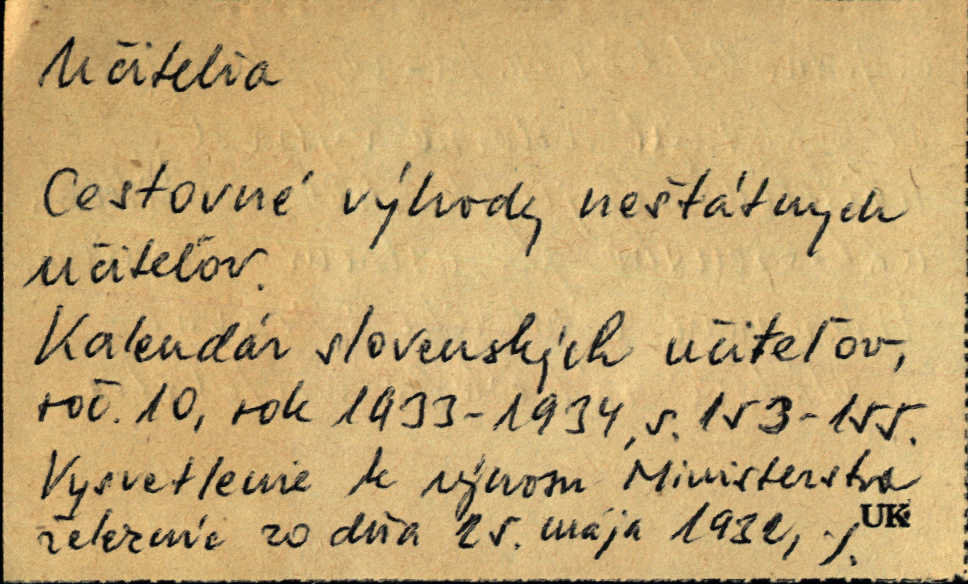 Učitelia
Cestovné výhody neštátnych
učiteľov.
Kalendár slovenských učiteľov,
roč. 10, rok 1933-1934, s. 153-155.
Vysvetlenie k výnosu Ministerstva
železníc zo dňa 25. mája 1932, ./.
UK